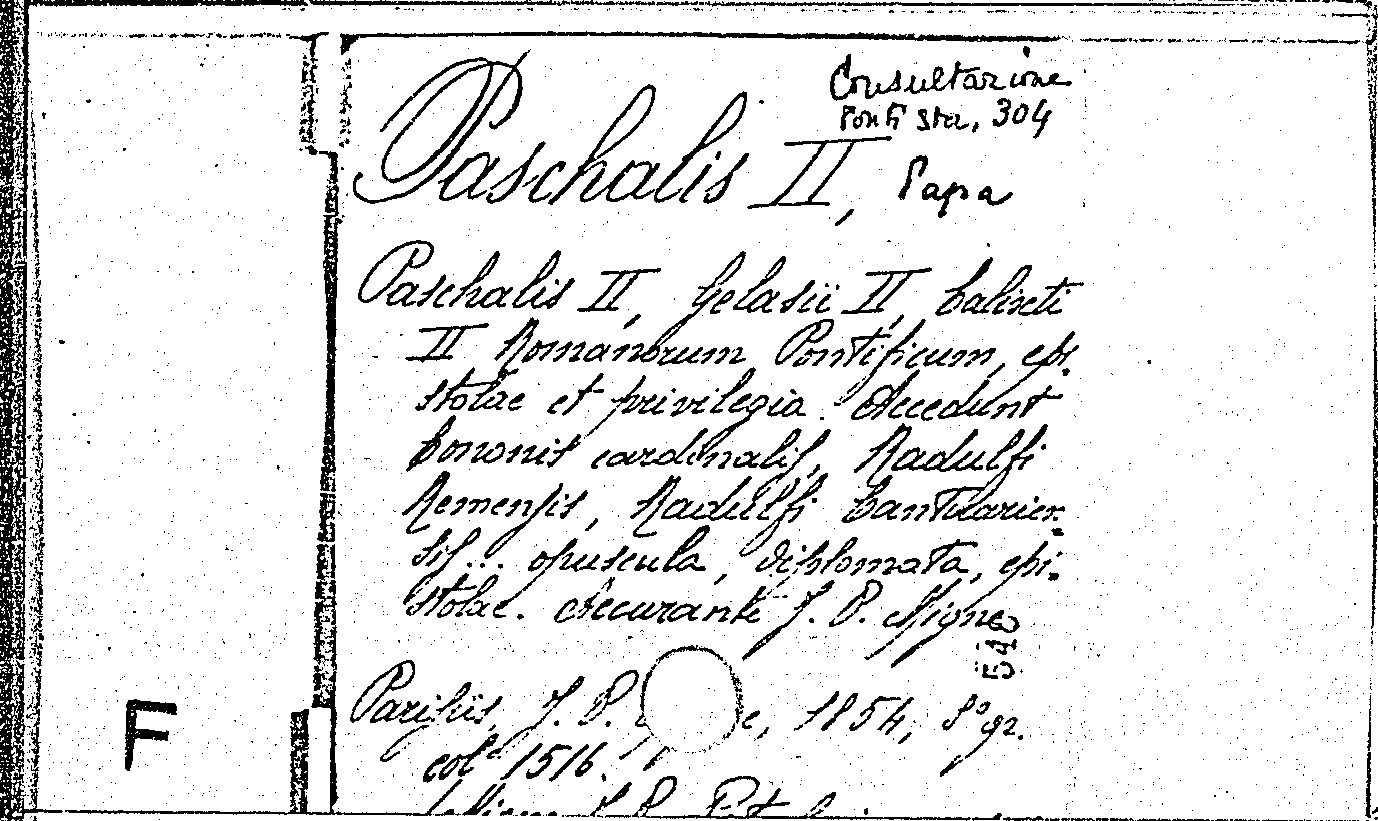 Consultazione
Ponti Sta, 304
Paschalis II, Papa
Paschalis II, Gelasii II, Calixti
II Romanorum Pontificum, epi-
stolae et privilegia. Accedunt
Cononis cardinalis, Radulfi
Remensis, Radulfi Cantuarien-
sis... opuscula, diplomata, epi-
stolae. Accurante J. P. Migne
546
Parisiis, J. P. e, 1854, 8° gr.
col. 1516.
F